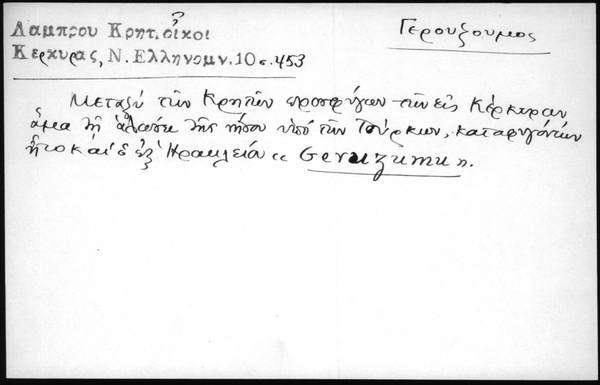 Λαμπρου Κρητ. οἶκοι
Κερκυρας, Ν. Ελληνομν. 10 σ. 453
Γερουζουμος
Μεταξύ τῶν Κρητῶν προσφύγων τῶν εἰς Κέρκυραν
ἅμα τῇ ἁλώσει τῆς νήσου ὑπό τῶν Τούρκων, καταφυγόντων
ἦτο καί ὁ ἐξ Ἡρακλείου « Geruzumu ».